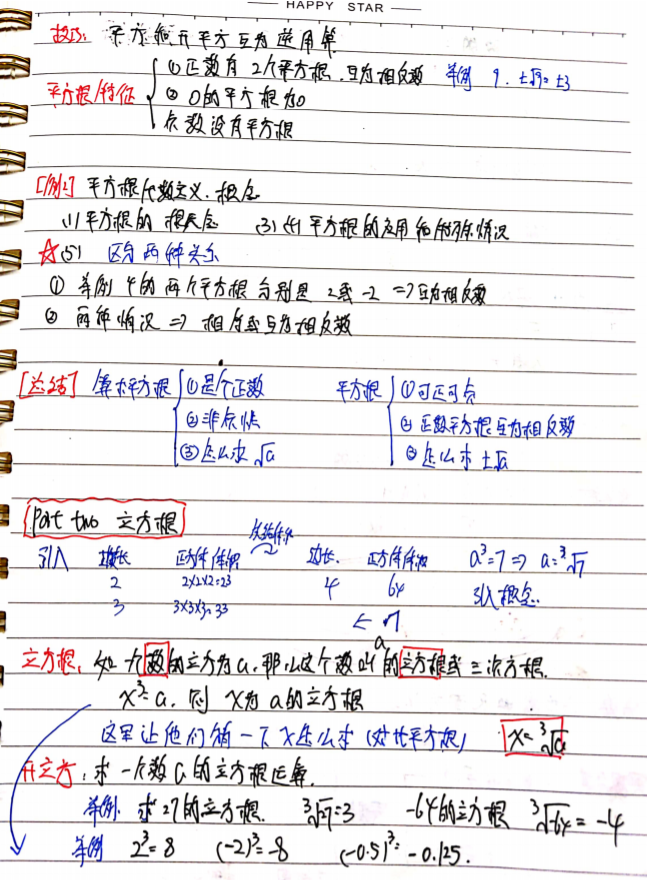 HAPPY STAR
技巧: 平方和开平方互为逆用算
平方根/特征 ① 正数有 2个平方根,互为相反数 举例 9. ±√9=±3
② 0的平方根为0
负数没有平方根
[例1] 平方根代数定义.概念
(1) 平方根的概念 (3)(4) 平方根的应用和特殊情况
☆(5) 区分两种关系
① 举例 4的两个平方根分别是 2或 -2 => 互为相反数
② 两种情况 => 相等或互为相反数
[总结] 算术平方根 ①是个正数 平方根 ①可正可负
②非负性 ② 正数平方根互为相反数
③怎么求 √a ③ 怎么求 ±√a
Part two 立方根
引入 边长 正方体体积 边长. 正方体体积 a³=7 => a=³√7
2 2×2×2=23 4 64 引入概念.
3 3×3×3=33 ← 7
立方根: 如一个数的立方为a,那么这个数叫a的立方根或三次方根.
x³=a. 则 x为a的立方根
这里让他们猜一下x怎么求 (对比平方根) x=³√a
开立方: 求一个数a的立方根运算.
举例. 求27的立方根. ³√27=3 -64的立方根 ³√-64=-4
举例 2³=8 (-2)³=-8 (-0.5)³=-0.125.